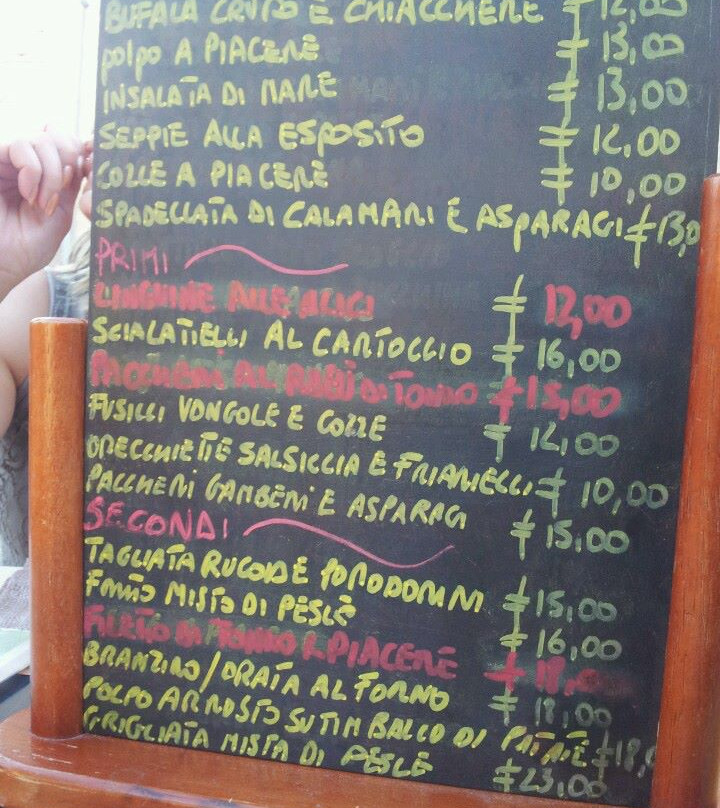 BUFALA CRUDO E CHIACCHERE € 12,00
POLPO A PIACERE € 13,00
INSALATA DI MARE € 13,00
SEPPIE ALLA ESPOSITO € 12,00
COZZE A PIACERE € 10,00
SPADELLATA DI CALAMARI E ASPARAGI € 13,0
PRIMI
LINGUINE ALLE ALICI € 12,00
SCIALATIELLI AL CARTOCCIO € 16,00
PACCHERI AL RAGÙ DI TONNO € 15,00
FUSILLI VONGOLE E COZZE € 12,00
ORECCHIETTE SALSICCIA E FRIARIELLI € 10,00
PACCHERI GAMBERI E ASPARAGI € 15,00
SECONDI
TAGLIATA RUCOLA E POMODORINI € 15,00
FRITTO MISTO DI PESCE € 16,00
FILETTO DI TONNO A PIACERE € 18,00
BRANZINO/ORATA AL FORNO € 18,00
POLPO ARROSTO SU TIMBALLO DI PATATE € 18,0
GRIGLIATA MISTA DI PESCE € 23,00